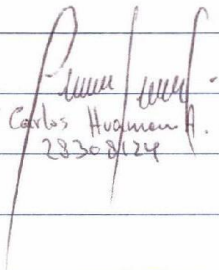 Carlos Huaman A.
28308124